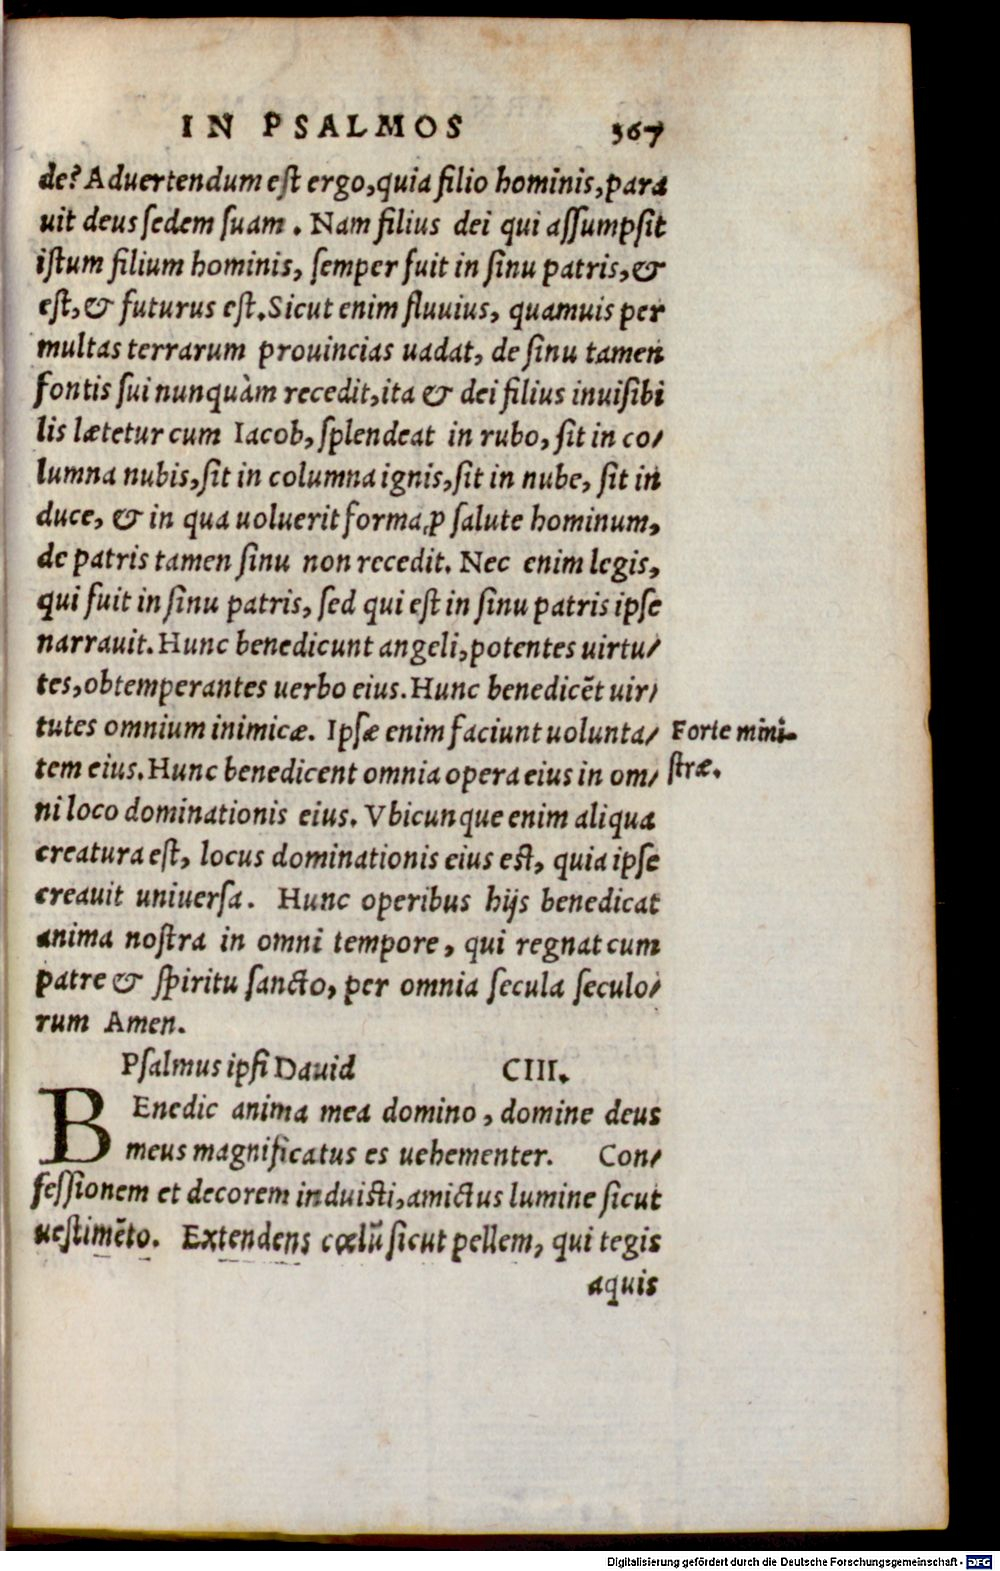 IN PSALMOS 367
de? Aduertendum est ergo, quia filio hominis, para
uit deus sedem suam. Nam filius dei qui assumpsit
istum filium hominis, semper fuit in sinu patris, &
est, & futurus est. Sicut enim fluuius, quamuis per
multas terrarum prouincias uadat, de sinu tamen
fontis sui nunquàm recedit, ita & dei filius inuisibi
lis lætetur cum Iacob, splendeat in rubo, sit in co/
lumna nubis, sit in columna ignis, sit in nube, sit in
duce, & in qua uoluerit forma, ꝓ salute hominum,
de patris tamen sinu non recedit. Nec enim legis,
qui fuit in sinu patris, sed qui est in sinu patris ipse
narrauit. Hunc benedicunt angeli, potentes uirtu/
tes, obtemperantes uerbo eius. Hunc benedicēt uir/
tutes omnium inimicæ. Ipsæ enim faciunt uolunta/
Forte mini-
stræ.
tem eius. Hunc benedicent omnia opera eius in om/
ni loco dominationis eius. Vbicunque enim aliqua
creatura est, locus dominationis eius est, quia ipse
creauit uniuersa. Hunc operibus hijs benedicat
anima nostra in omni tempore, qui regnat cum
patre & spiritu sancto, per omnia secula seculo/
rum Amen.
Psalmus ipsi Dauid CIII.
BEnedic anima mea domino, domine deus
meus magnificatus es uehementer. Con/
fessionem et decorem induisti, amictus lumine sicut
uestimēto. Extendens cœlū sicut pellem, qui tegis
aquis
Digitalisierung gefördert durch die Deutsche Forschungsgemeinschaft - DFG